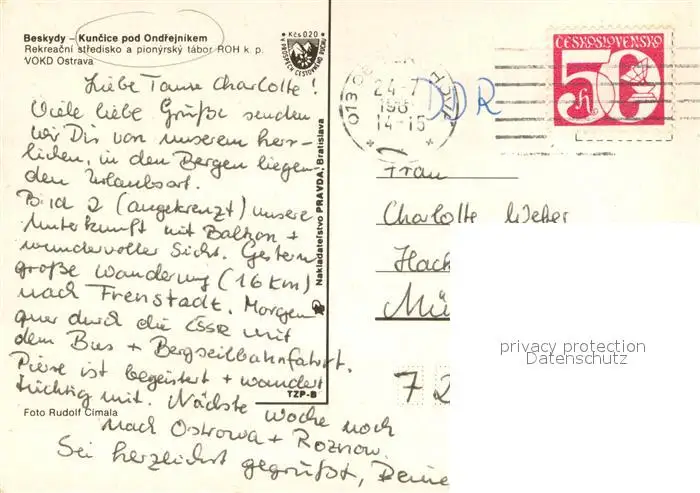 Beskydy – Kunčice pod Ondřejníkem
Rekreační středisko a pionýrský tábor ROH k. p.
VOKD Ostrava
Kčs 020
PROSPĚCH CESTOVNÍHO RUCHU
Liebe Tante Charlotte!
Viele liebe Grüße senden
wir Dir von unserem herr-
lichen, in den Bergen liegen
den Urlaubsort.
Bild 2 (angekreuzt) unsere
Unterkunft mit Balkon +
wundervoller Sicht. Gestern
große Wanderung (16 km)
nach Frenstadt. Morgen
quer durch die ČSSR mit
dem Bus + Bergseilbahnfahrt.
ist begeistert + wandert
tüchtig mit. Nächste Woche noch
nach Ostrowa + Roznow.
Sei herzlichst gegrüßt, Deine
Foto Rudolf Címala
TZP-B
Nakladateľstvo PRAVDA, Bratislava
24.-7.
14-15
DDR
ČESKOSLOVENSKO
50 h
Frau
Charlotte Weber
Hack
Mü
7 2
privacy protection
Datenschutz